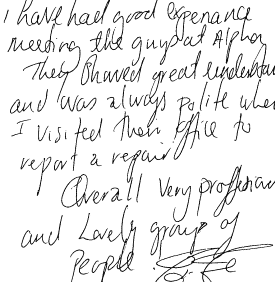 I have had good experience
meeting the guys at Alpha
They Showed great understan
and was always polite when
I visited their office to
report a repair
Overall very profession
and Lovely group of
People.